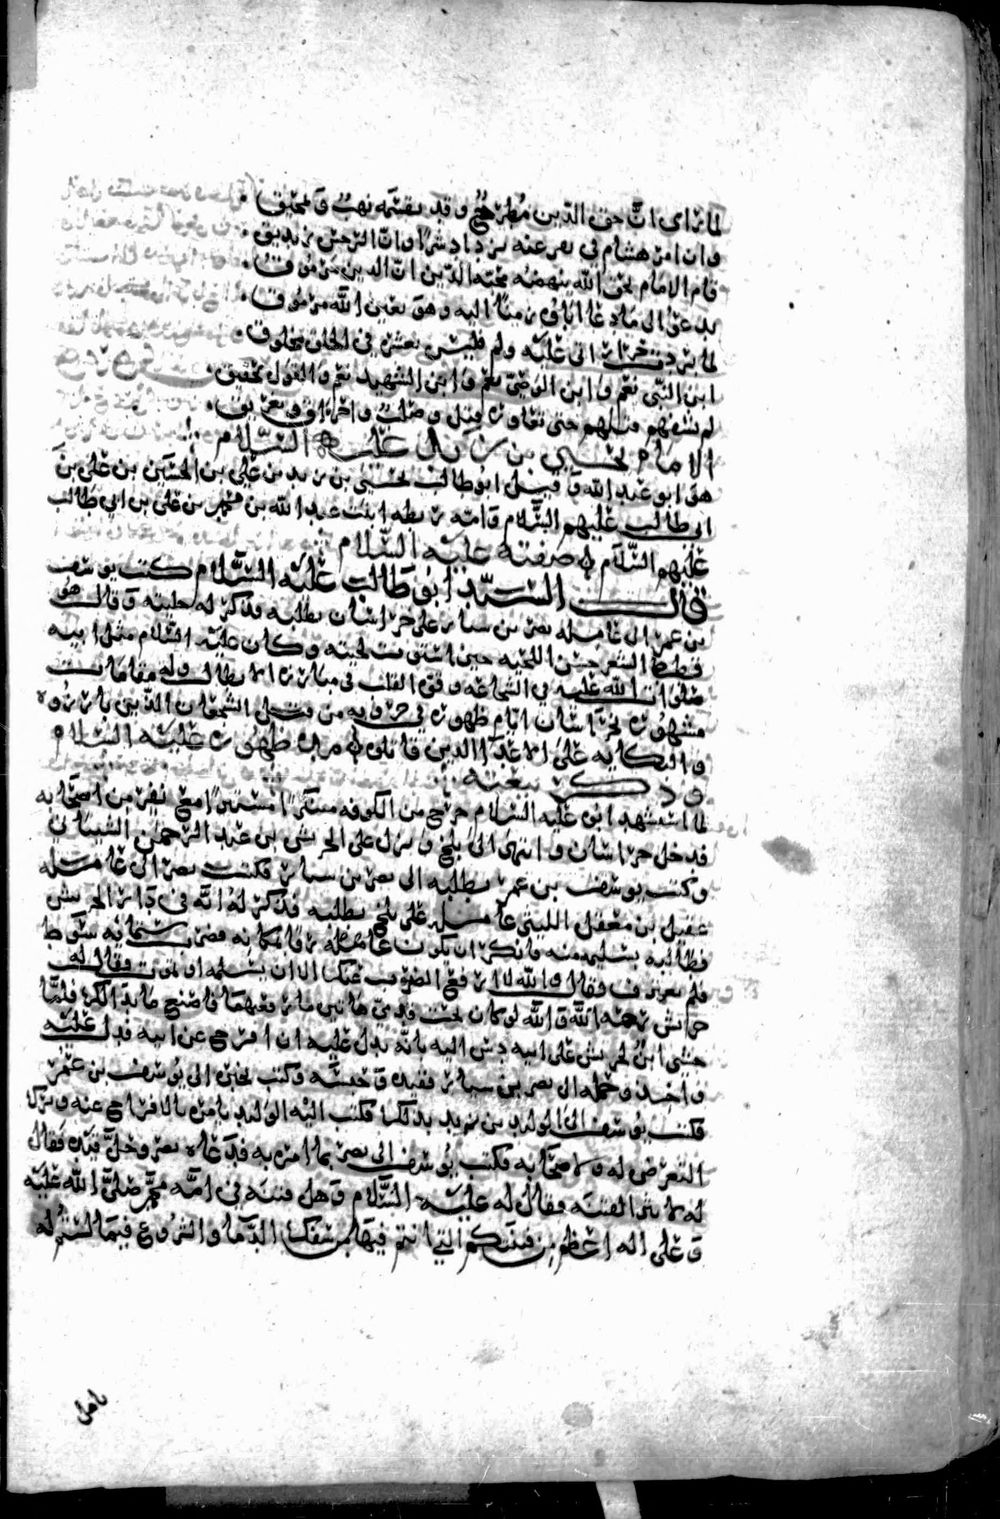 لما راى ان حق الدين مطرح وقد تقسمه نهب وتمحيق
وان امر هشام في يزداد شرا وان الرجس زنديق
قام الامام بحق الله ينهضه محبة الدين ان الدين موموق
يدعو الى ما دعا اباؤه زمنا اليه وهو بعين الله مرموق
ابن النبي نعم وابن الوصي نعم وابن الشهيد نعم والقول تحقيق
لم يشفهم قتلهم حتى تعاوره قتل وصلب واحراق وتغريق
الامام يحيى بن زيد عليه السلام
هو ابو عبد الله وقيل ابو طالب يحيى بن زيد بن علي بن الحسين بن علي بن
ابي طالب عليهم السلام وامه ريطه ابنت عبد الله بن محمد بن علي بن ابي طالب
عليهم السلام صفته عليه السلام
قال السيد ابو طالب عليه السلام كتب يوسف
بن عمر الى عامله نصر بن سيار على خراسان بطلبه فذكر له حليته وقال هو
قطط الشعر حسن اللحيه حين استوت لحيته وكان عليه السلام مثل ابيه
صلى الله عليه في الشجاعه وقوة القلب في مبارزة الابطال وله مقامات
مشهورة بخراسان ايام ظهوره في حروبه من قتل الشجعان الذين بارزوه
والنكايه على الاعداء الذين قاتلوه مدة ظهوره عليه السلام
وذكر بيعته
لما استشهد ابوه عليه السلام خرج من الكوفه متنكرا مستترا مع نفر من اصحابه
فدخل خراسان وانتهى الى بلخ ونزل على الحريش بن عبد الرحمن الشيباني
وكتب يوسف بن عمر بطلبه الى نصر بن سيار فكتب نصر الى عامله
عقيل بن معقل الليثي عامله على بلخ بطلبه فذكر له انه في دار الحريش
فطالبه بتسليمه منه فانكر ان يكون عارفا مكانه فضربه ستمائه سوط
فلم يعترف فقال والله لا ارفع الضرب عنك الا ان تسلمه او تموت وقال له
حريش رحمه الله والله لو كان تحت قدمي هاتين ما رفعتهما فاصنع ما بدا لك فلما
خشي ابن الحريش على ابيه دس اليه بانه يدل عليه ان افرج عن ابيه فدل عليه
واخذه وحمله الى نصر بن سيار فقيده وحبسه وكتب بخبره الى يوسف بن عمر
فكتب يوسف الى الوليد بن يزيد بذلك فكتب اليه الوليد يامره بالافراج عنه وترك
التعرض له ولاصحابه فكتب يوسف الى نصر بما امره به فدعاه نصر وحل قيده فقال
له لا تثر الفتنه فقال له عليه السلام وهل فتنه في امه محمد صلى الله عليه
وعلى اله اعظم من فتنتكم التي انتم فيها من سفك الدماء والشروع فيما لستم له
باهل